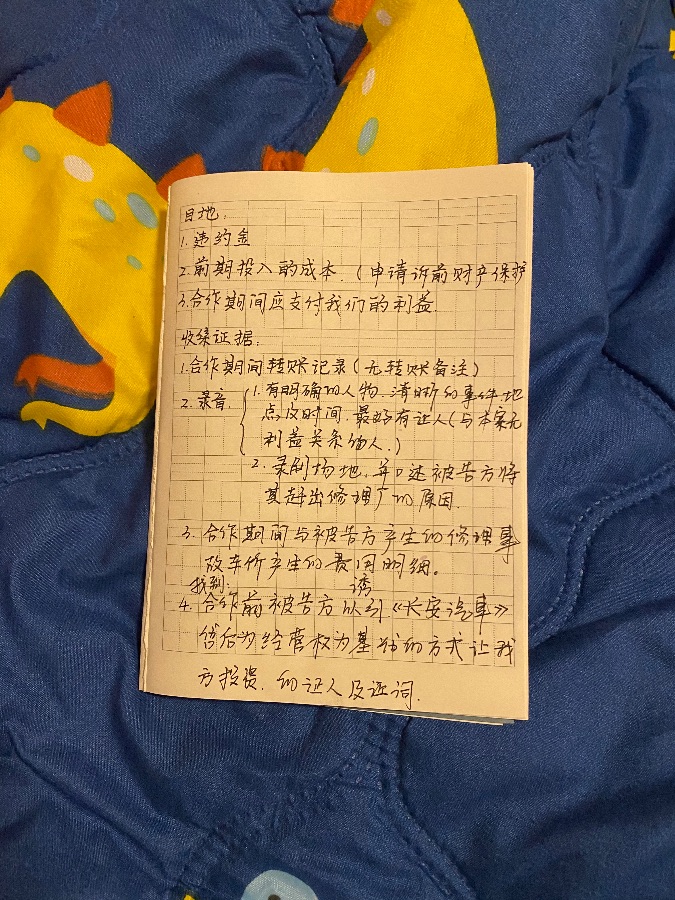 目地:
1.违约金
2.前期投入的成本.(申请诉前财产保护
3.合作期间应支付我们的利益.
收集证据:
1.合作期间转账记录(无转账备注)
2.录音.
1.有明确的人物.清晰的事件地
点及时间.最好有证人(与本案无
利益关系的人.)
2.录制场地,并口述被告方将
其赶出修理厂的原因.
3.合作期间与被告方产生的修理事
故车所产生的费用明细。
找到:
4.合作前被告方以诱引《长安汽车》
售后为经营权为基础的方式让我
方投资.的证人及证词.